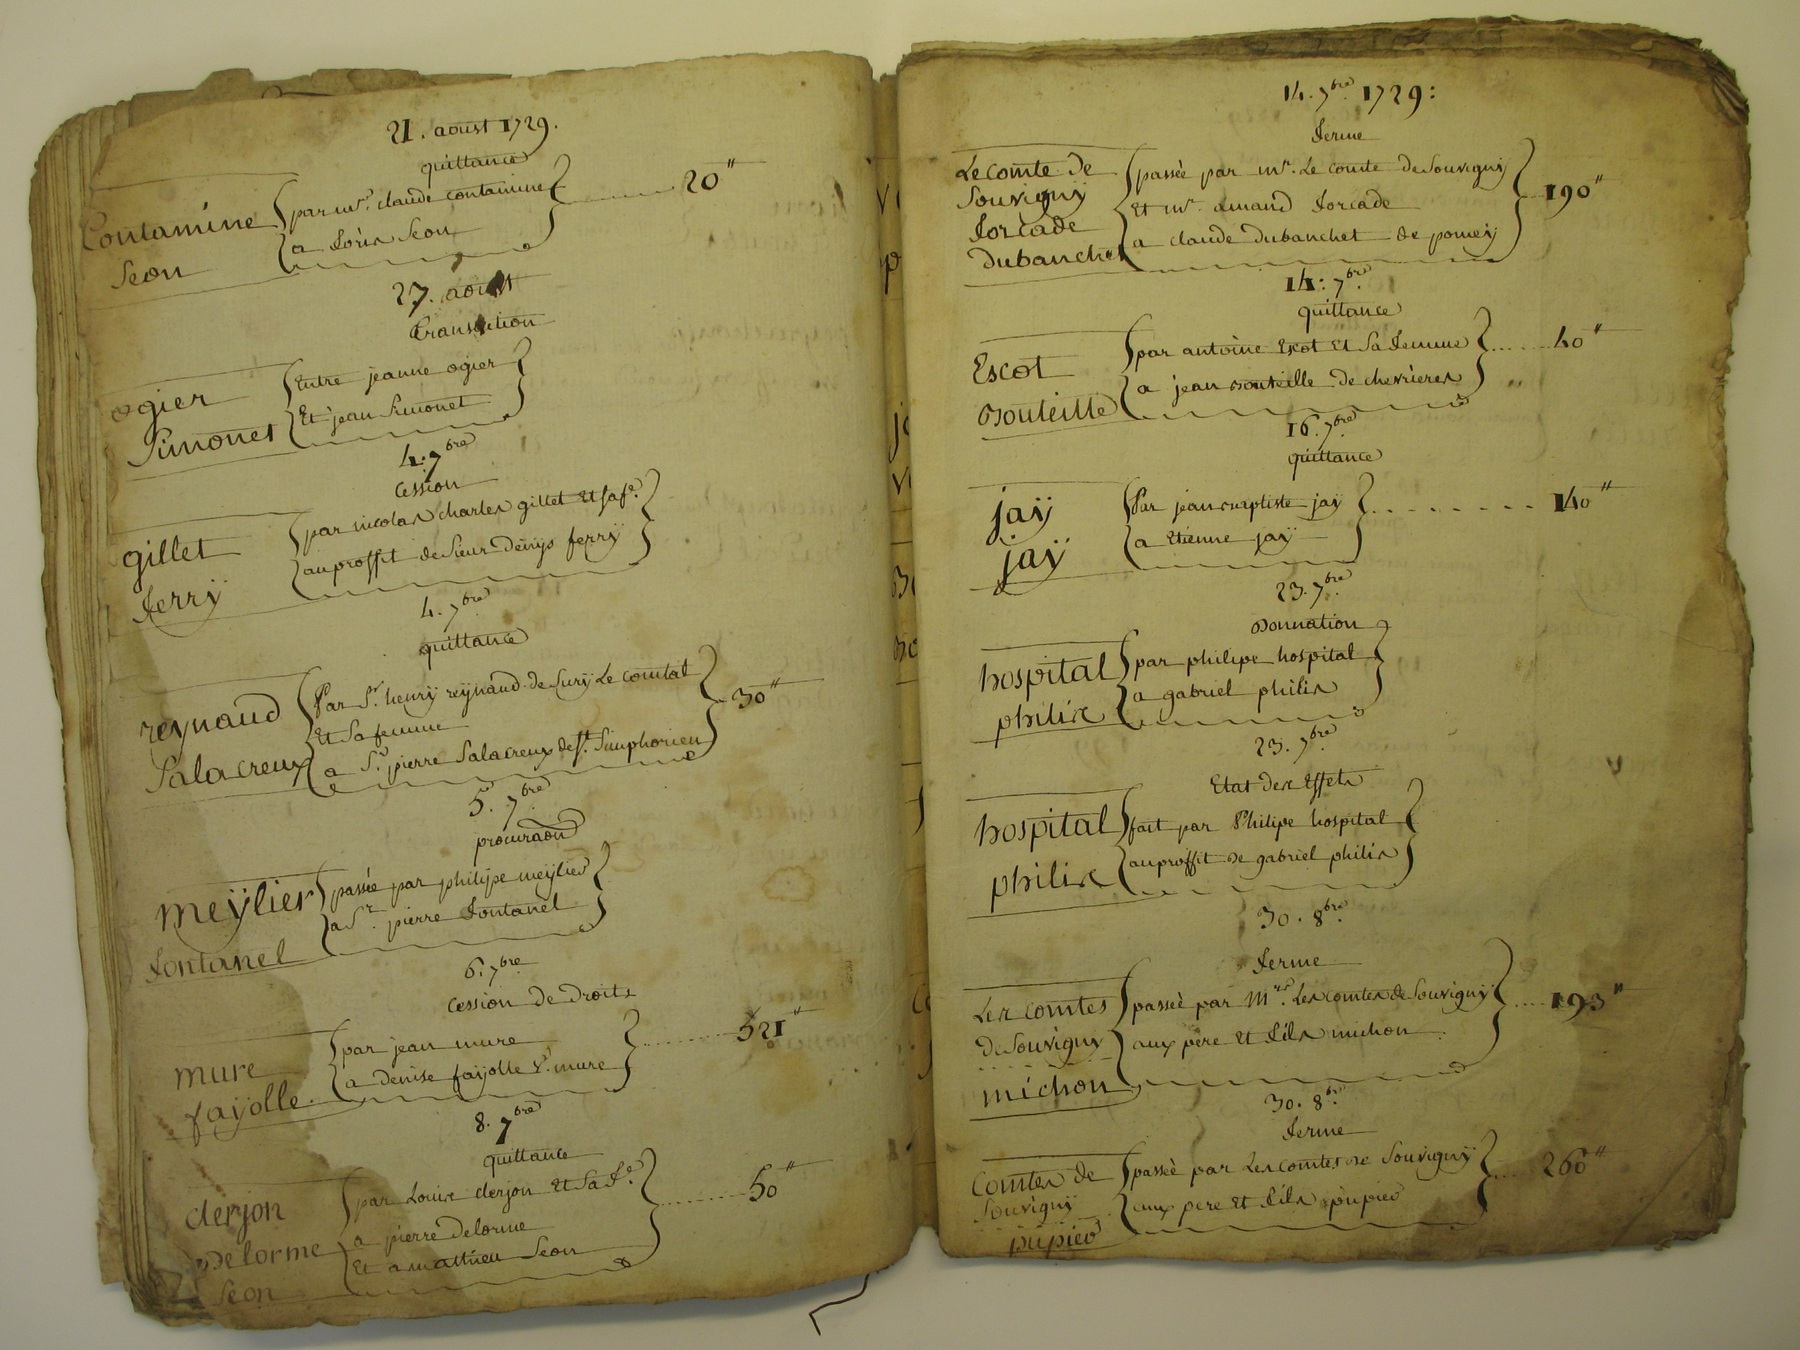 21. aoust 1729.
quittance
Contamine
Seon
par mr. claude contamine
a Loüis Seon
20"
27. aoust
Transaction
ogier
Simonet
Entre jeanne ogier
Et jean Simonet
4. 7bre
Cession
gillet
ferrÿ
par nicolas charles gillet Et sa fe.
au proffit de Sieur Denÿs ferrÿ
4. 7bre
quittance
reynaud
Salacreux
Par Sr. henrÿ reÿnaud de Surÿ Le comtal
Et Sa femme
a Sr. pierre Salacreux de St. Simphorien
30"
5. 7bre
procuraõn
meÿlier
fontanel
passée par philipe meÿlier
a Sr. pierre fontanel
6. 7bre
Cession de droits
mure
faÿolle
par jean mure
a denise faÿolle Ve. mure
521"
8. 7bre
quittance
derjon
Delorme
Seon
par Louis derjon Et Sa fe.
a pierre delorme
Et a mathieu Seon
50"
14. 7bre 1729:
ferme
Le comte de
Souvignÿ
forcade
dubanchet
passée par mr. Le comte de Souvignÿ
Et mr. amand forcade
a claude dubanchet de pomeÿ
190"
14: 7bre.
quittance
Escot
Bouteille
par antoine Escot Et Sa femme
a jean Bouteille de chevrieres
40"
16. 7bre
quittance
jaÿ
jaÿ
Par jean Baptiste jaÿ
a Etienne jaÿ
140"
23. 7bre.
Donnation
hospital
philix
par philipe hospital
a gabriel philix
23. 7bre.
Etat des Effets
hospital
philix
fait par Philipe hospital
au proffit de gabriel philix
30. 8bre.
ferme
Les comtes
de Souvignÿ
michon
passeé par Mrs. Les comtes de Souvignÿ
aux pere Et fils michon
193"
30. 8bre
ferme
Comtes de
Souvignÿ
pupier
passeé par Les comtes de Souvignÿ
aux pere Et fils pupier
260"